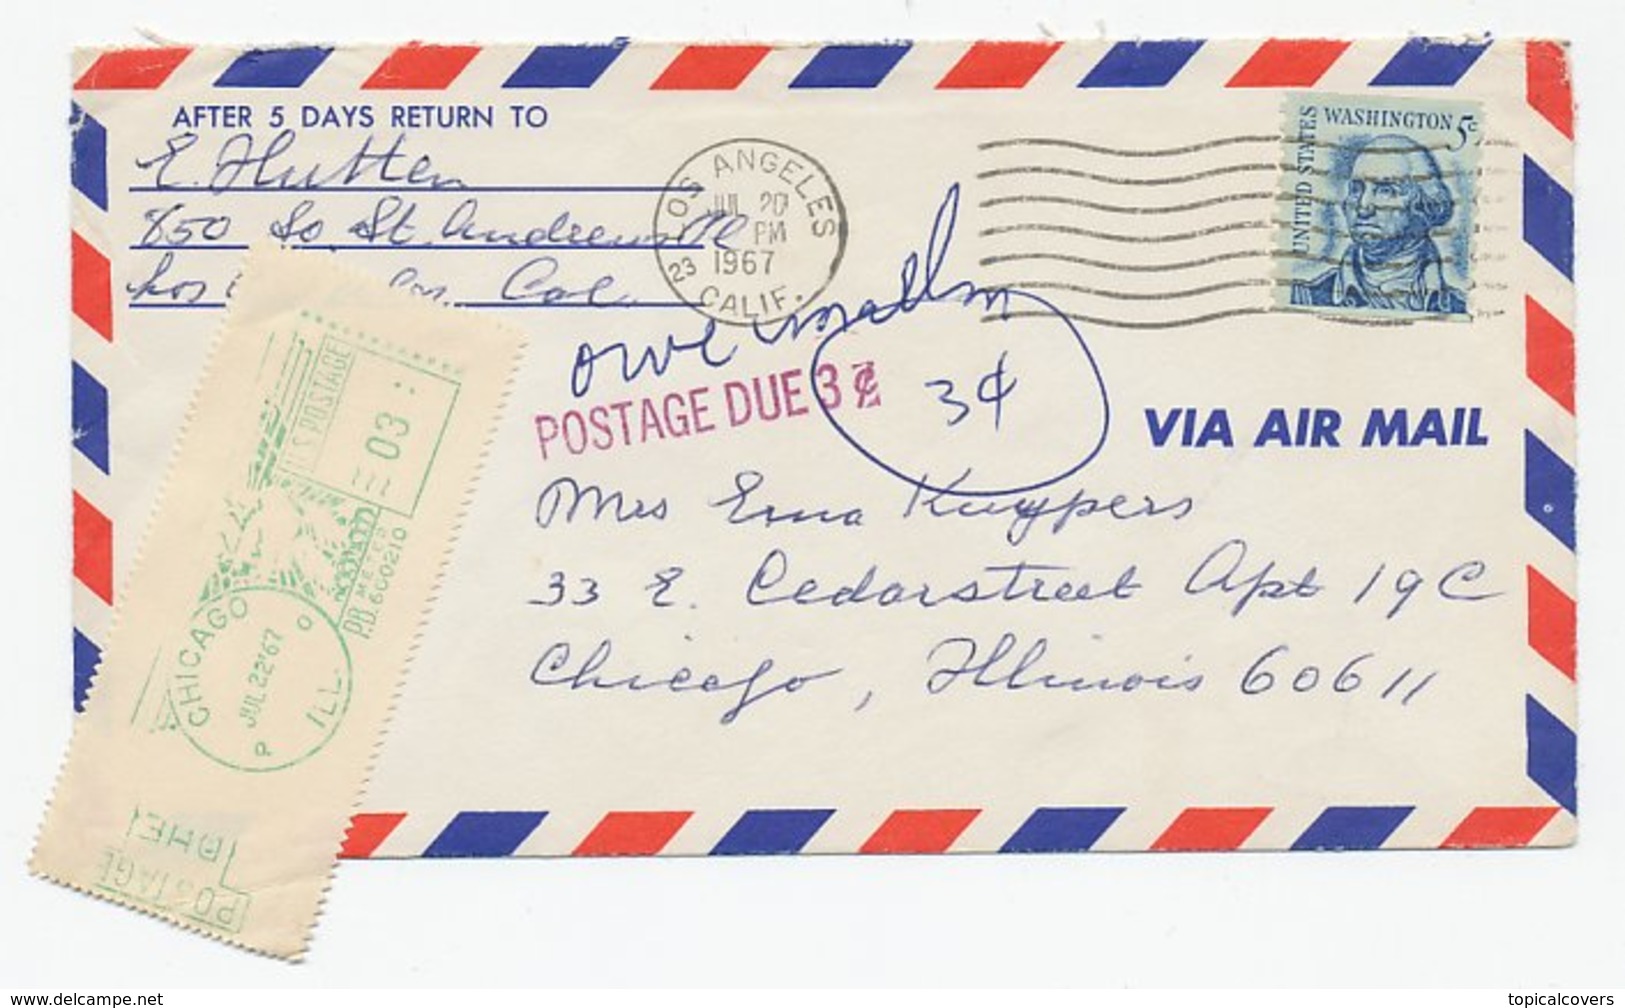 AFTER 5 DAYS RETURN TO
E. Hutten
850 So St. Andrews Pl
Los
Cal.
LOS ANGELES
JUL 20
PM
1967
23 CALIF.
UNITED STATES
WASHINGTON 5c
owe
POSTAGE DUE 3 ¢
3¢
VIA AIR MAIL
Mrs Erna Kuypers
33 E. Cedarstreet Apt 19C
Chicago, Illinois 60611
U.S. POSTAGE
03
P.B. METER
600210
CHICAGO
JUL 22 '67
ILL.
POSTAGE
DUE
delcampe.net
topicalcovers